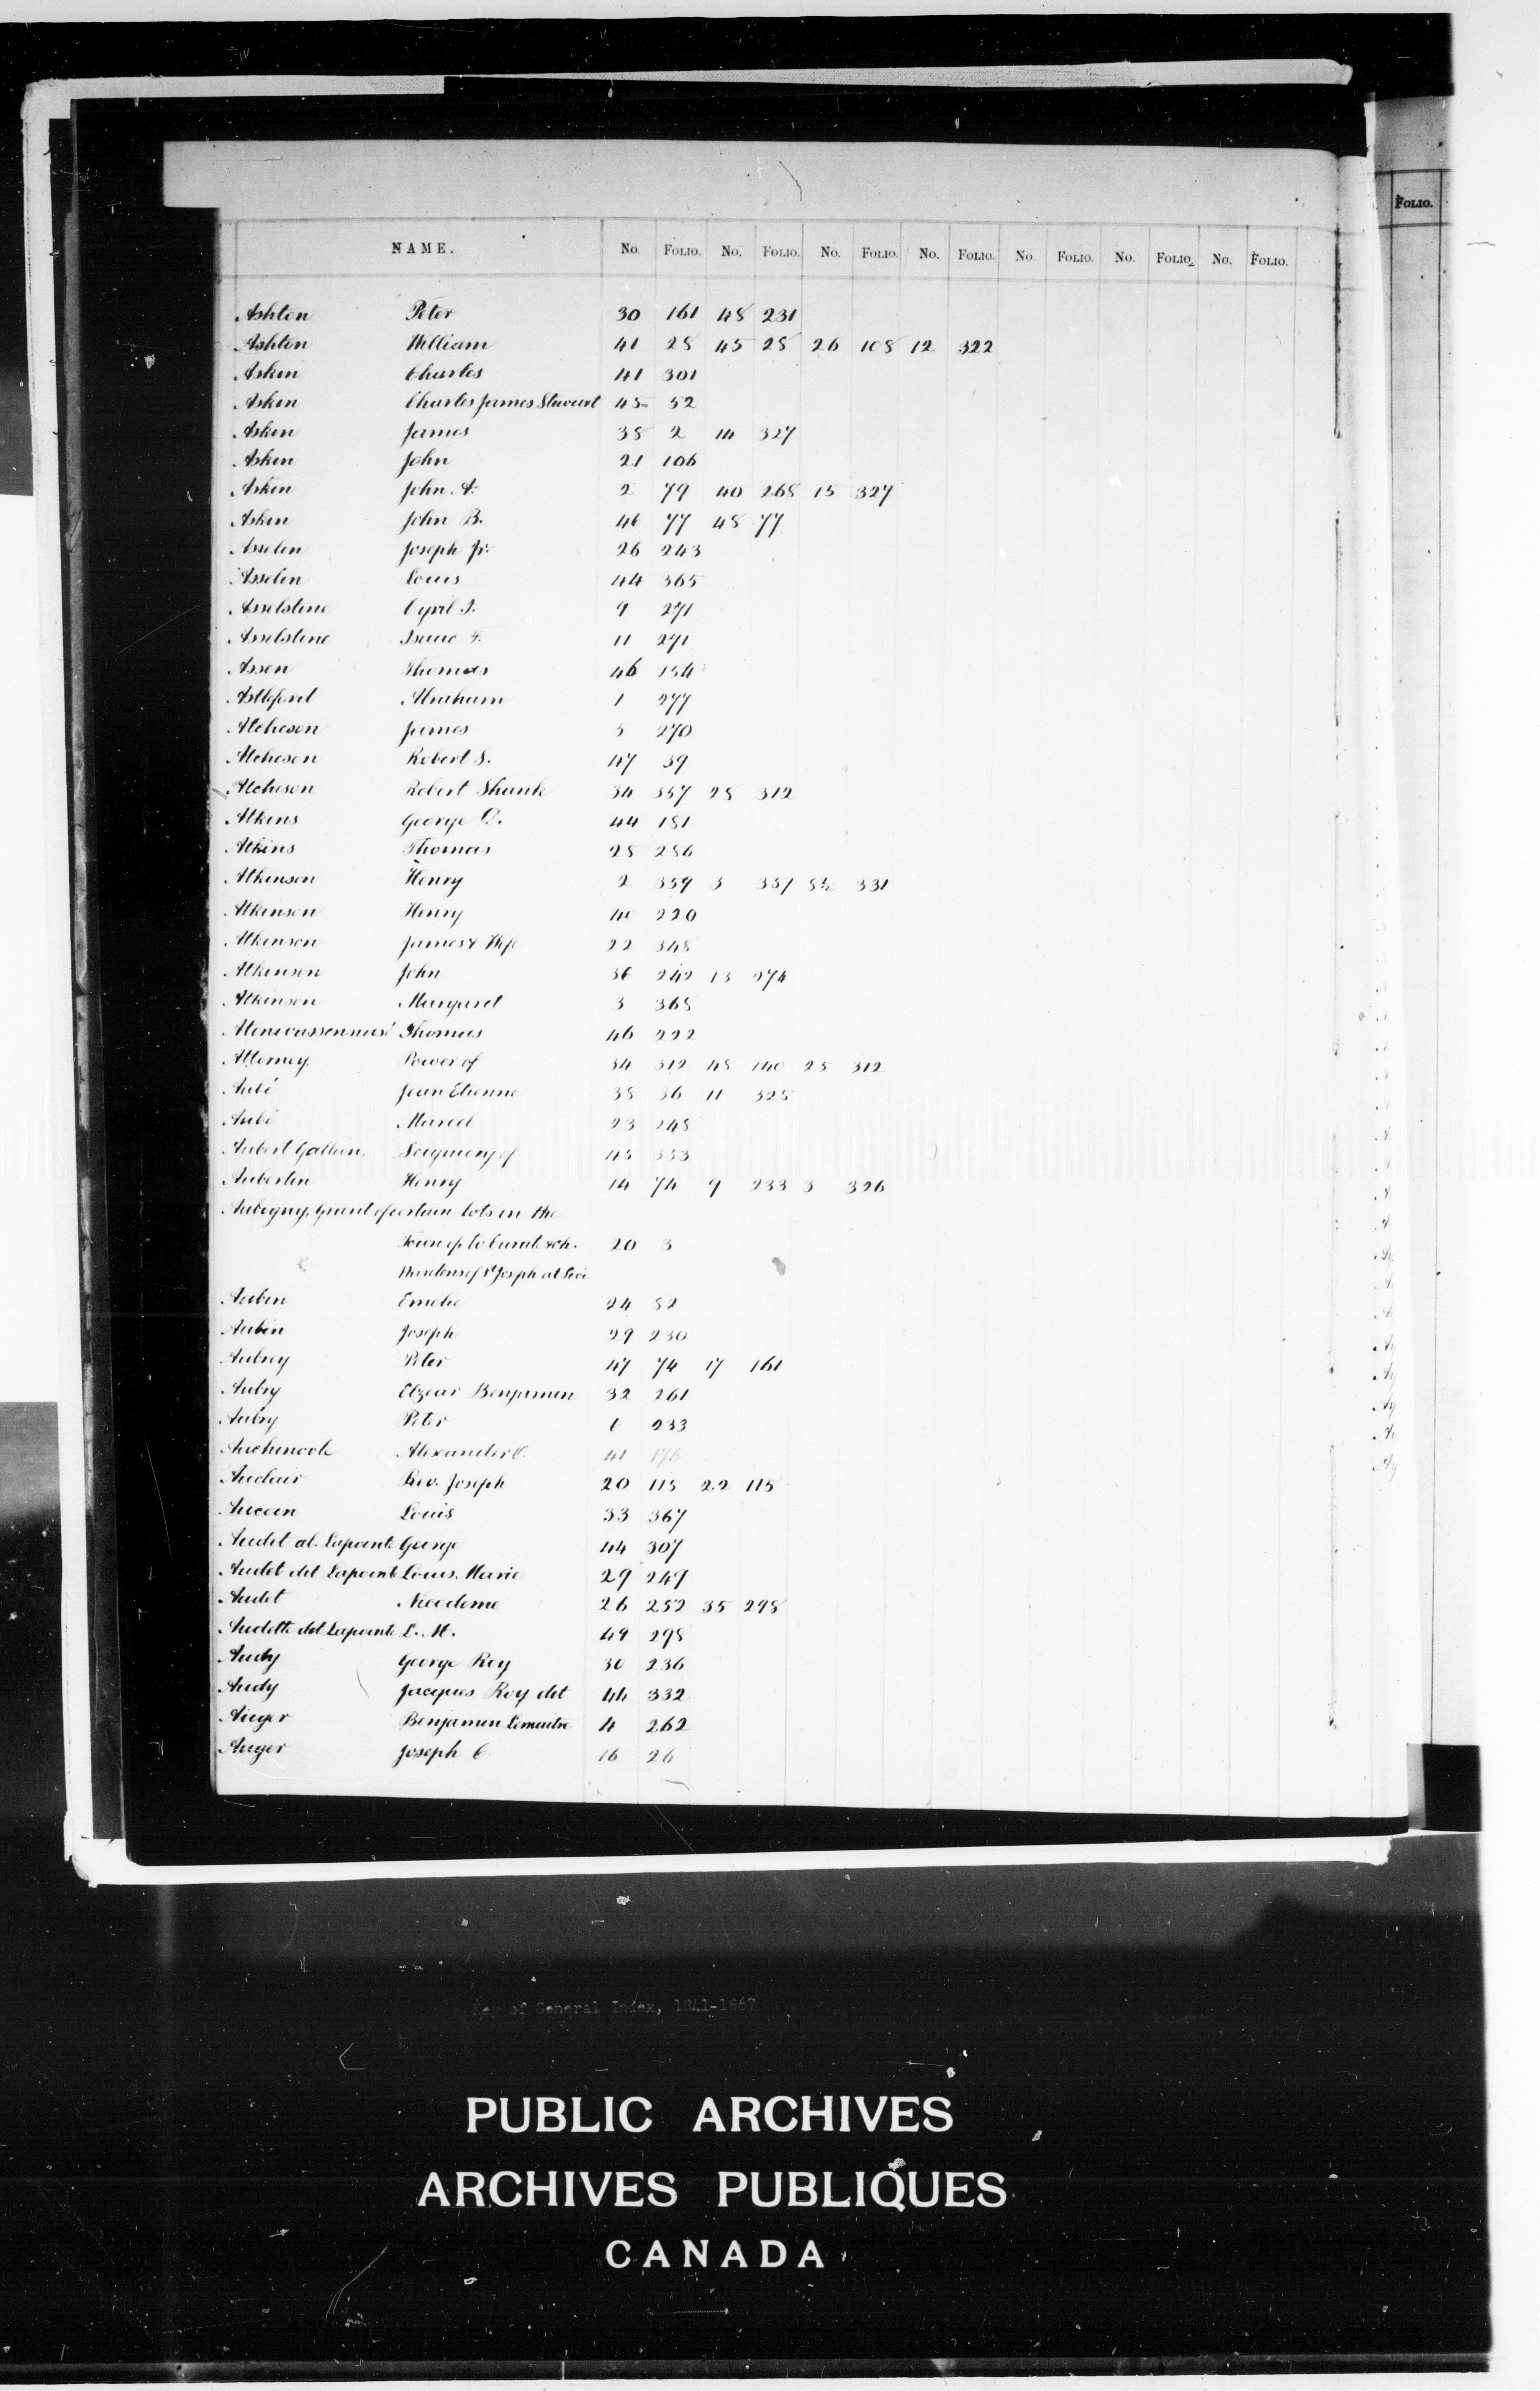 FOLIO.
NAME. No. FOLIO. No. FOLIO. No. FOLIO. No. FOLIO. No. FOLIO. No. FOLIO. No. FOLIO.
Ashton Peter 30 161 48 231
Ashton William 41 28 45 28 26 108 12 322
Askin Charles 41 301
Askin Charles James Stewart 45 52
Askin James 38 2 14 327
Askin John 21 106
Askin John A. 2 79 40 268 15 327
Askin John B. 46 77 48 77
Asselin Joseph Jr. 26 243
Asselin Louis 44 365
Asselstine Cyril I. 9 271
Asselstine Isaac F. 11 271
Assen Thomas 46 154
Abraham 1 277
Atcheson James 5 270
Atcheson Robert S. 47 39
Atcheson Robert Shank 34 357 28 312
Atkins George D. 44 181
Atkins Thomas 28 286
Atkinson Henry 2 359 3 357 331
Atkinson Henry 40 220
Atkinson James & Wife 22 348
Atkinson John 36 242 13 274
Atkinson Margaret 3 368
Thomas 46 222
Attorney, Power of 34 312 48 140 25 312
Aubé Jean Etienne 38 36 11 325
Aubé Marcel 23 248
Aubert Gallion, Seigniory of 45 353
Aubertin Henry 14 74 9 233 3 326
Aubigny, Grant of certain lots in the
Town of to Curate & Ch. 20 3
Wardens of St Joseph at Levi
Aubin Emelie 24 52
Aubin Joseph 29 230
Aubrey Peter 47 74 17 161
Aubry Elzear Benjamin 32 261
Aubry Peter 6 233
Alexander C. 41 176
Auclair Rev. Joseph 20 115 22 115
Aucoin Louis 33 367
Audet al. Lapointe George 44 307
Audet dit Lapointe Louis Marie 29 249
Audet Nicodeme 26 252 35 298
Audette dit Lapointe L. M. 49 298
Audy George Roy 30 236
Audy Jacques Roy dit 44 332
Auger Benjamin Lemaitre 4 262
Auger Joseph C. 16 26
Key of General Index, 1841-1867
PUBLIC ARCHIVES
ARCHIVES PUBLIQUES
CANADA